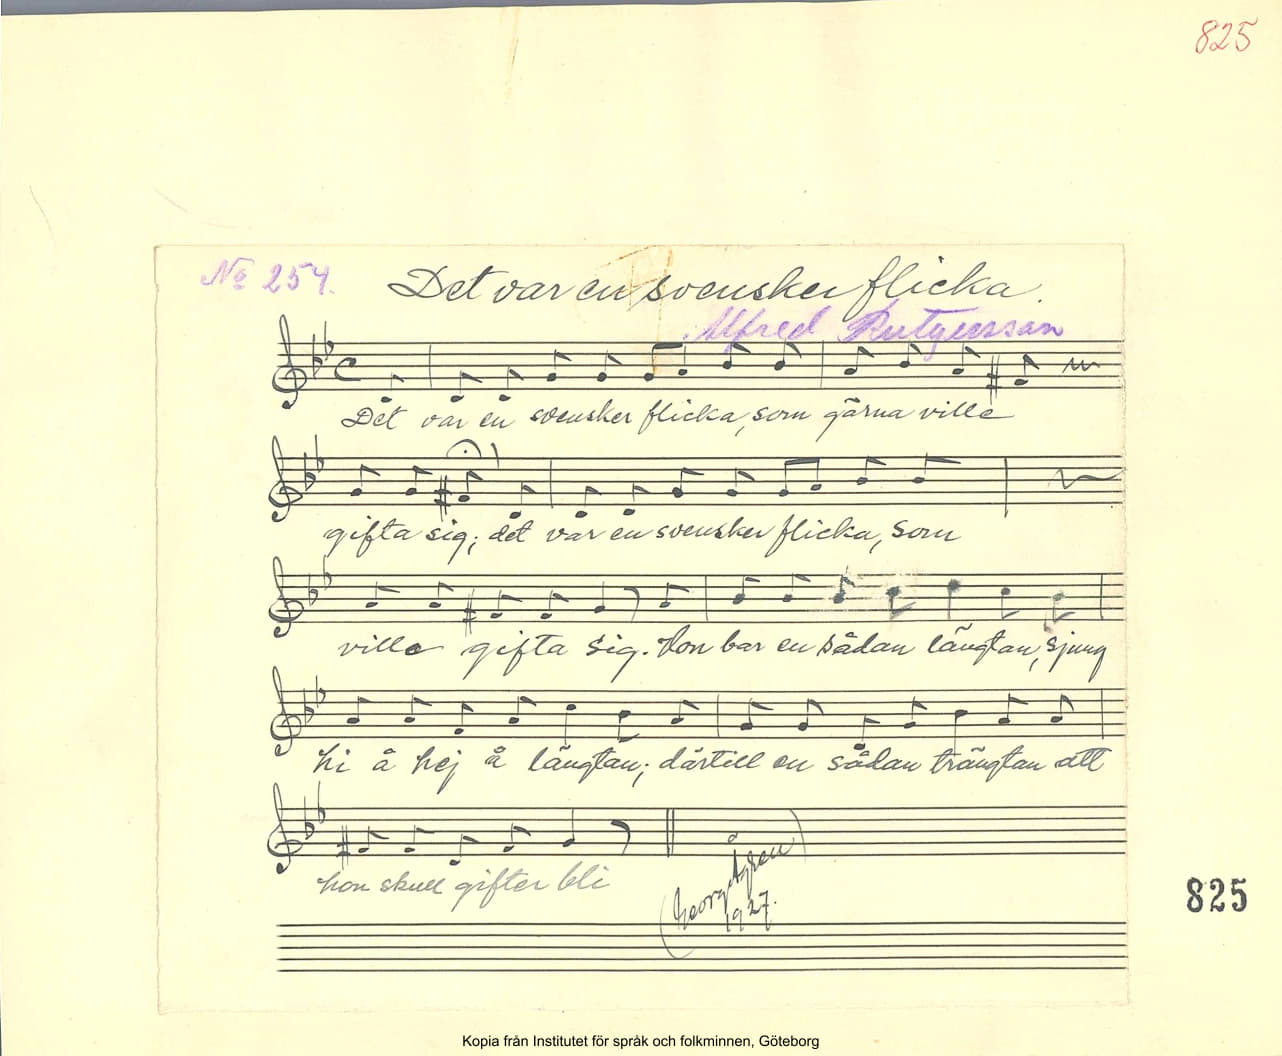 825
No 254.
Det var en svensker flicka.
Alfred Rutgersson
Det var en svensker flicka, som gärna ville
gifta sig; det var en svensker flicka, som
ville gifta sig. Hon bar en sådan längtan, sjung
hi å hej å längtan; därtill en sådan trängtan att
hon skull gifter bli
(Georg Ågren)
1927.
825
Kopia från Institutet för språk och folkminnen, Göteborg